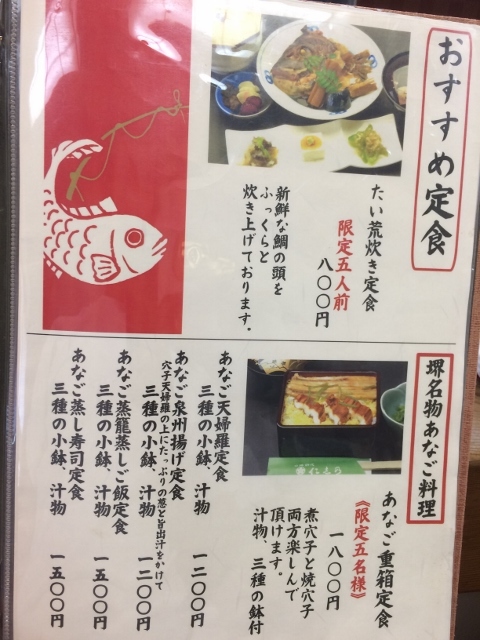 おすすめ定食
たい荒炊き定食
限定五人前
八〇〇円
新鮮な鯛の頭を
ふっくらと
炊き上げております。
堺名物あなご料理
あなご重箱定食
《限定五名様》
一八〇〇円
煮穴子と焼穴子
両方楽しんで
頂けます。
汁物、三種の鉢付
あなご天婦羅定食
三種の小鉢、汁物 一二〇〇円
あなご泉州揚げ定食
穴子天婦羅の上にたっぷりの葱と旨出汁をかけて
三種の小鉢、汁物 一二〇〇円
あなご蒸籠蒸しご飯定食
三種の小鉢、汁物 一五〇〇円
あなご蒸し寿司定食
三種の小鉢、汁物 一五〇〇円